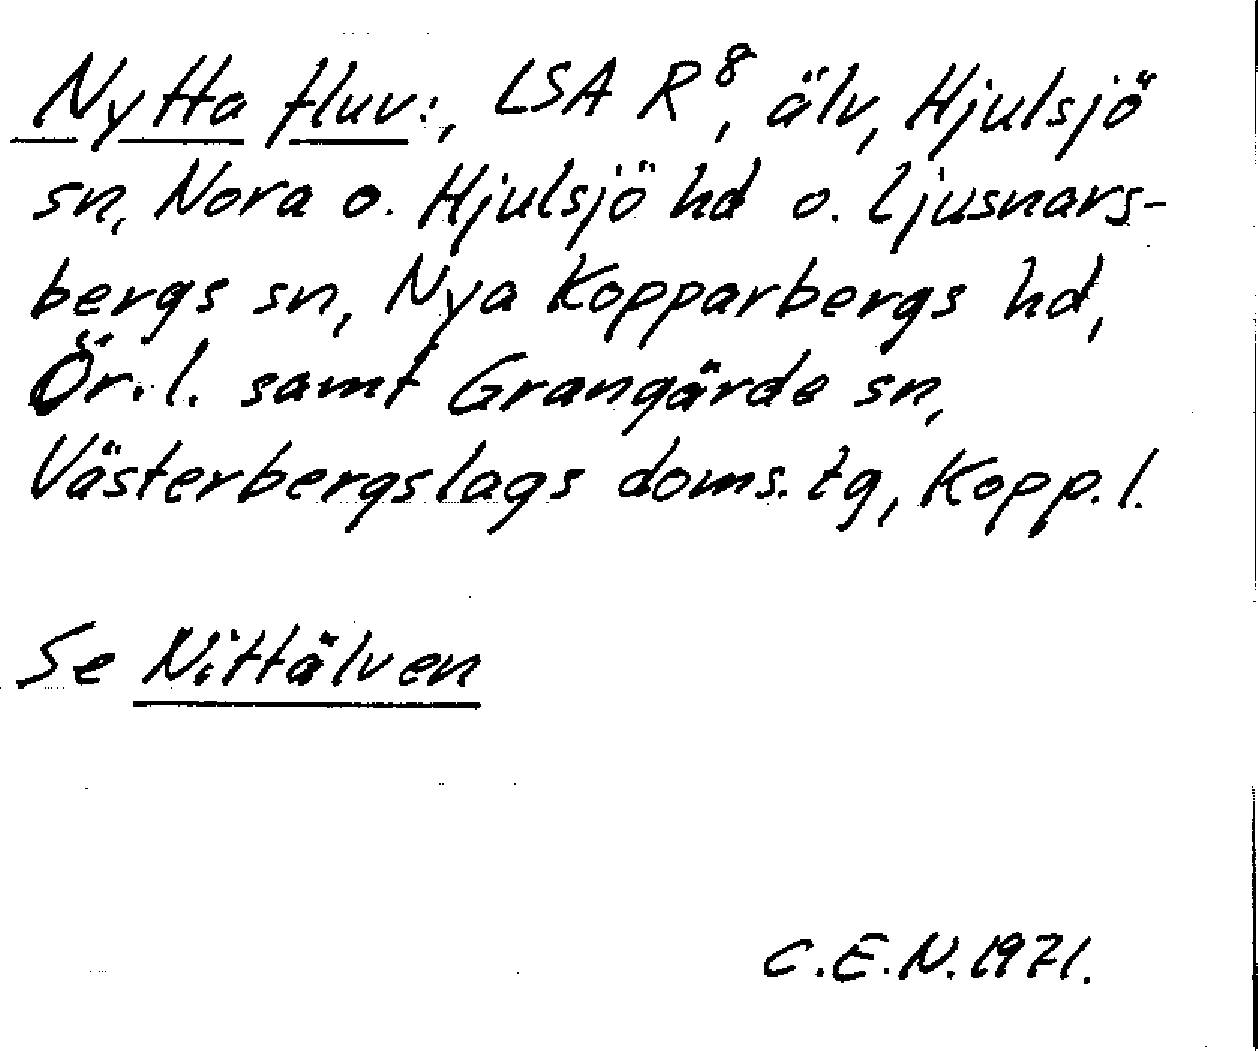 Nytta fluv:, LSA R⁸, älv, Hjulsjö
sn, Nora o. Hjulsjö hd o. Ljusnars-
bergs sn, Nya Kopparbergs hd,
Ör. l. samt Grangärde sn,
Västerbergslags doms. tg, Kopp. l.
Se Nittälven
C.E.N. 1971.